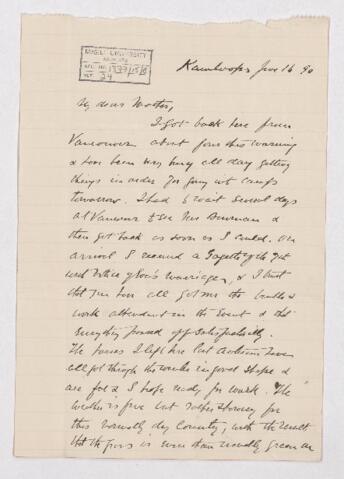 McGILL UNIVERSITY
ARCHIVES
ACC. NO.
REF. 34
Kamloops June 16 90
My dear Mother,
I got back here from
Vancouver about four this morning
& have been very busy all day getting
things in order for going into camp
tomorrow. I had to wait several days
at Vancouver to see Mr Bowman &
then got back as soon as I could. On
arrival I received a Gazette of the 7th
with notice of Eva's marriage, & I trust
that you have all got over the trouble &
work attendant on the event & that
everything passed off satisfactorily.
The horses I left here last autumn have
all got through the winter in good shape &
are fat & I hope ready for work. The
weather is fine but rather showery for
this normally dry Country, with the result
that the grass is more than usually green on